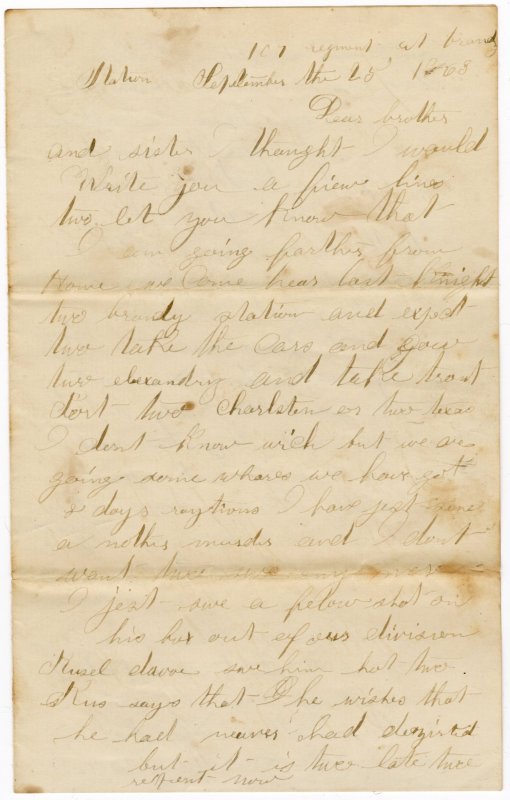 107 regment at brandy
Station September the 25 1863
Dear brother
and sister I thought I would
Write you a friew lines
two let you Know that
I am going farther from
Home we Come hear last Knight
two brandy station and expct
two take the Cars and gow
two elexandry and take trant
Port two Charlston or two texas
I dont Know wich but we are
going some whares we have got
8 days raytions I have jest sene
a nother murder and I dont
want two see any more
I jest swe a felow shot on
his box out of our division
Rusel davoe swe him hot two
Rus says that he wishes that
he had never had elisted
but it is twe late twe
repent now